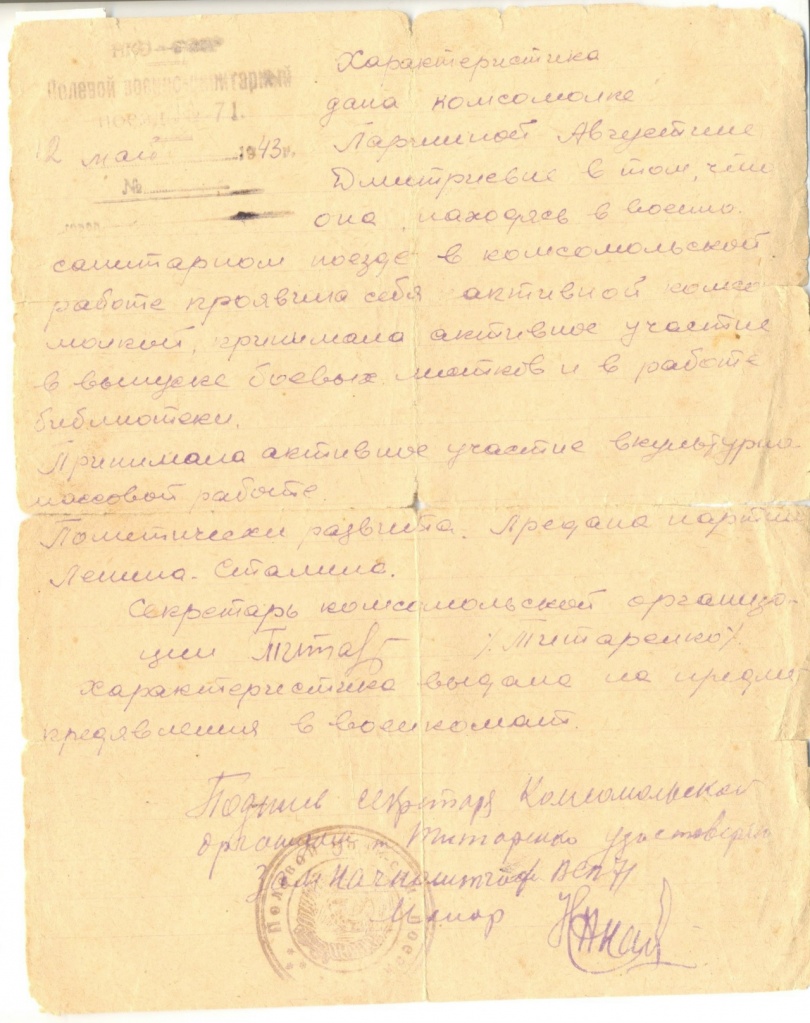 НКО-СССР
Полевой военно-санитарный
поезд № 71.
2 май 1943 г.
№
Характеристика
дана комсомолке
Ларчиной Августине
Дмитриевне в том, что
она, находясь в военно-
санитарном поезде в комсомольской
работе проявила себя активной комсо
молкой, принимала активное участие
в выпуске боевых листков и в работе
библиотеки.
Принимала активное участие вкультурно
массовой работе.
Политически развита. Предана партии
Ленина-Сталина.
Секретарь комсомольской организа-
ции /Титаренко/.
Характеристика выдана на предмет
предявления в военкомат.
Подпись секретаря Комсомольской
организации т. Титаренко удостоверяю
Зам Нач по политчасти ВСП 71
Майор